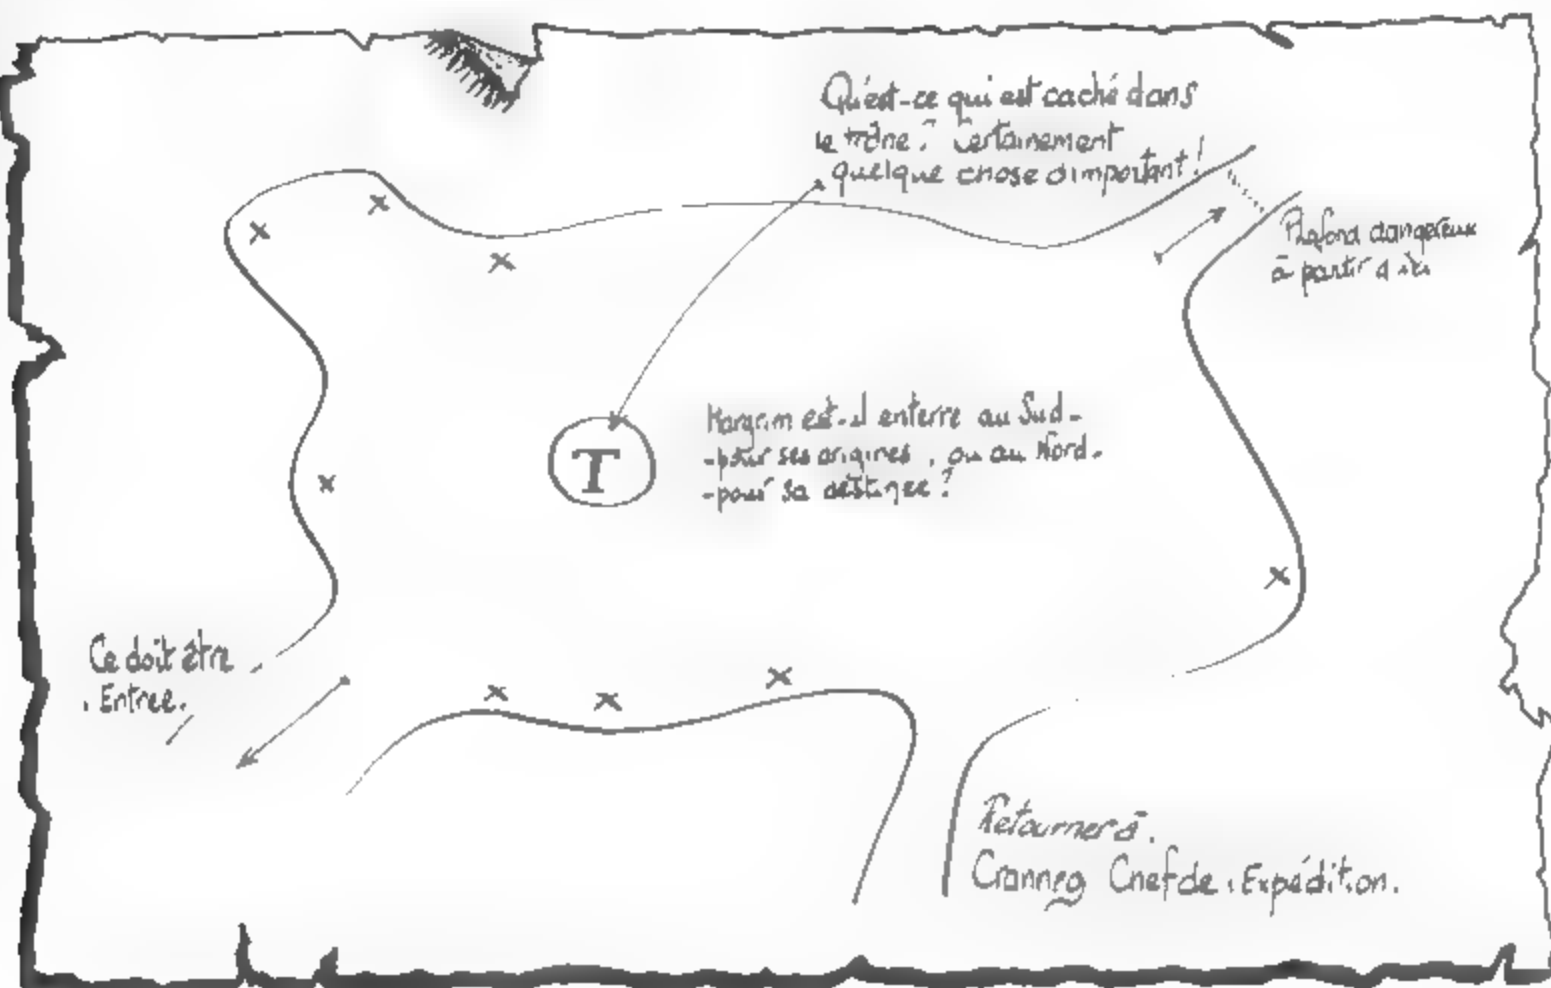 Qu'est-ce qui est caché dans
le trône? Certainement
quelque chose d'important!
Plafond dangereux
à partir d'ici
T
Margrim est-il enterré au Sud-
-pour ses origines, ou au Nord-
-pour sa destinée?
Ce doit être
l'Entrée.
Retourner à.
Cranneg Chef de l'Expédition.